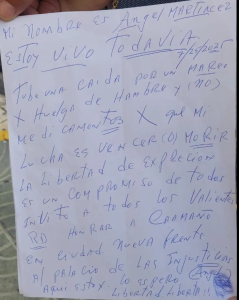 Mi NOMBRE ES Angel MARTINEZ
ESTOY VIVO TODAVIA
7/25/2025
TUBE UNA CAIDA POR UN MAREO
X Huelga de HAMBRE y (NO)
MEDICAMENTOS X que Mi
LUCHA ES VENCER (O) MORIR
LA LiberTAD de EXPRECION
ES UN COMPROMISO de TODOS
INVITO A TODOS LOS VALIENTES
RD HONRAR A CAAMAÑO
EN CIUDAD NUEVA FRENTE
Al PALACIO de LAS INJUSTICIAS
AQUI ESTOY. LO ESPERO Angel
LIBERTAD LIBERTAD